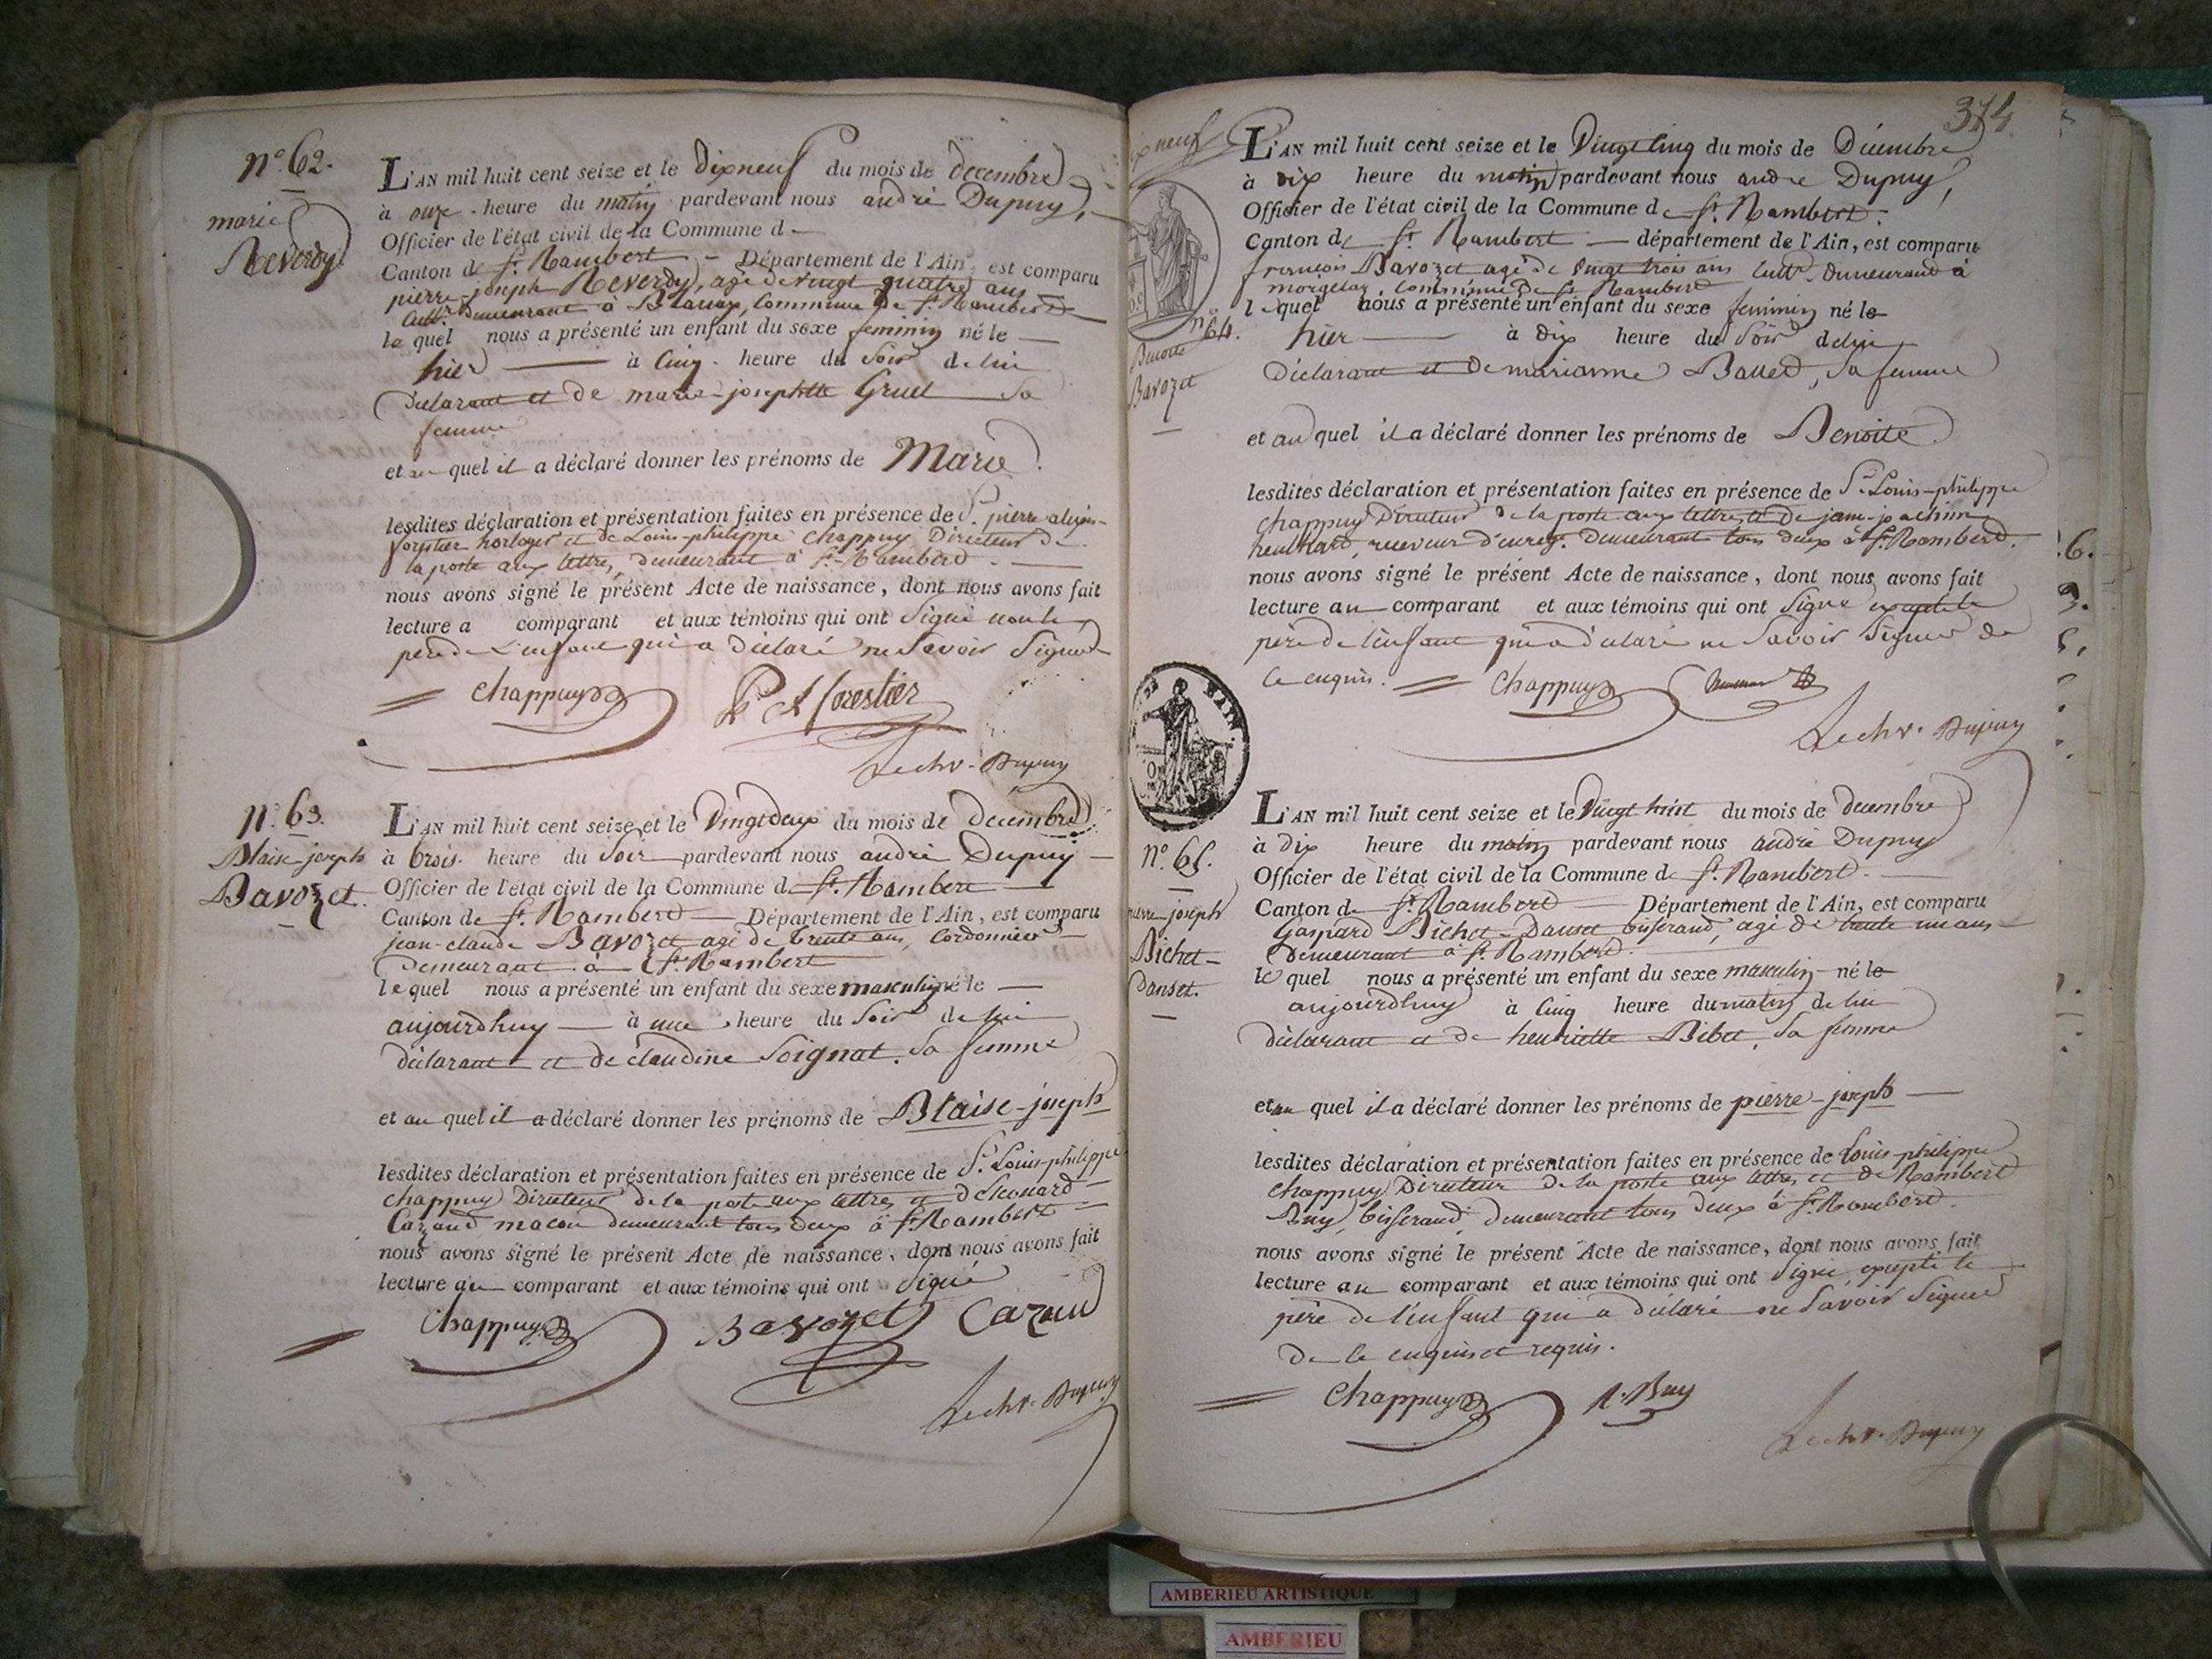 n.º 62.
marie
Reverdy
L'AN mil huit cent seize et le dixneuf du mois de decembre
à onze heure du matin pardevant nous andré Dupuy,
Officier de l'état civil de la Commune d
Canton de St. Rambert Département de l'Ain, est comparu
pierre-joseph Reverdy, agé de vingt quatre ans
cultr. demeurant à Blanaz, Commune de St. Rambert
le quel nous a présenté un enfant du sexe feminin né le
hier à cinq heure du soir de lui
déclarant et de marie-josephtte Gruel sa
femme
et au quel il a déclaré donner les prénoms de Marie
lesdites déclaration et présentation faites en présence de Sr. pierre alexis
forestier horloger et de Louis-philippe Chappuy Directeur de
la poste aux lettres, demeurant à St. Rambert
nous avons signé le présent Acte de naissance, dont nous avons fait
lecture a comparant et aux témoins qui ont signé non le
père de l'enfant qui a déclaré ne savoir signer
Chappuy P A forestier
Le chr. Dupuy
n.º 63.
Blaise-joseph
Bavozet.
L'AN mil huit cent seize et le vingtdeux du mois de decembre
à trois heure du soir pardevant nous andré Dupuy
Officier de l'etat civil de la Commune de St. Rambert
Canton de St. Rambert Département de l'Ain, est comparu
jean-claude Bavozet agé de trente ans, Cordonnier
demeurant à St. Rambert
lequel nous a présenté un enfant du sexe masculin né le
aujourdhuy à une heure du soir de lui
déclarant et de claudine Soignat, sa femme
et au quel il a déclaré donner les prénoms de Blaise-joseph
lesdites déclaration et présentation faites en présence de Sr. Louis-philippe
Chappuy Directeur de la poste aux lettres et de Léonard
Cazaud maçon demeurant tous deux à St. Rambert
nous avons signé le présent Acte de naissance, dont nous avons fait
lecture au comparant et aux témoins qui ont signé
Chappuy Bavozet Cazau
Le chr. Dupuy
374
ixneuf
n.º 64.
Benoite
Bavozet
L'AN mil huit cent seize et le Vingt cinq du mois de Décembre
à dix heure du matin pardevant nous andré Dupuy,
Officier de l'état civil de la Commune de St. Rambert.
Canton de St. Rambert département de l'Ain, est comparu
francois Bavozet agé de vingt trois ans cultr. demeurant à
morgelaz, Commune de St. Rambert
lequel nous a présenté un enfant du sexe feminin né le
hier à dix heure du soir de lui
déclarant et de marianne Ballet, sa femme
et au quel il a déclaré donner les prénoms de Benoite
lesdites déclaration et présentation faites en présence de Sr. Louis-philippe
Chappuy Directeur de la poste aux lettres et de jean-joachim
receveur d'enreg. demeurant tous deux à St. Rambert.
nous avons signé le présent Acte de naissance, dont nous avons fait
lecture au comparant et aux témoins qui ont signé excepté le
père de l'enfant qui a déclaré ne savoir signer de
ce enquis. Chappuy
Le chr. Dupuy
n.º 65.
pierre-joseph
Bichet-
Danset.
L'AN mil huit cent seize et le Vingt huit du mois de decembre
à dix heure du matin pardevant nous andré Dupuy
Officier de l'état civil de la Commune de St. Rambert.
Canton de St. Rambert Département de l'Ain, est comparu
Gaspard Bichet-Danset tisserand, agé de trente un ans
demeurant à St. Rambert.
le quel nous a présenté un enfant du sexe masculin né le
aujourdhuy à cinq heure du matin de lui
déclarant et de henriette Bibet, sa femme
et au quel il a déclaré donner les prénoms de pierre-joseph
lesdites déclaration et présentation faites en présence de Louis-philippe
Chappuy Directeur de la poste aux lettres et de Rambert
Buy, tisserand, demeurant tous deux à St. Rambert.
nous avons signé le présent Acte de naissance, dont nous avons fait
lecture au comparant et aux témoins qui ont signé, excepté le
père de l'enfant qui a déclaré ne savoir signer
de ce enquis et requis.
Chappuy R. Buy
Le chr. Dupuy
AMBERIEU ARTISTIQUE
AMBERIEU